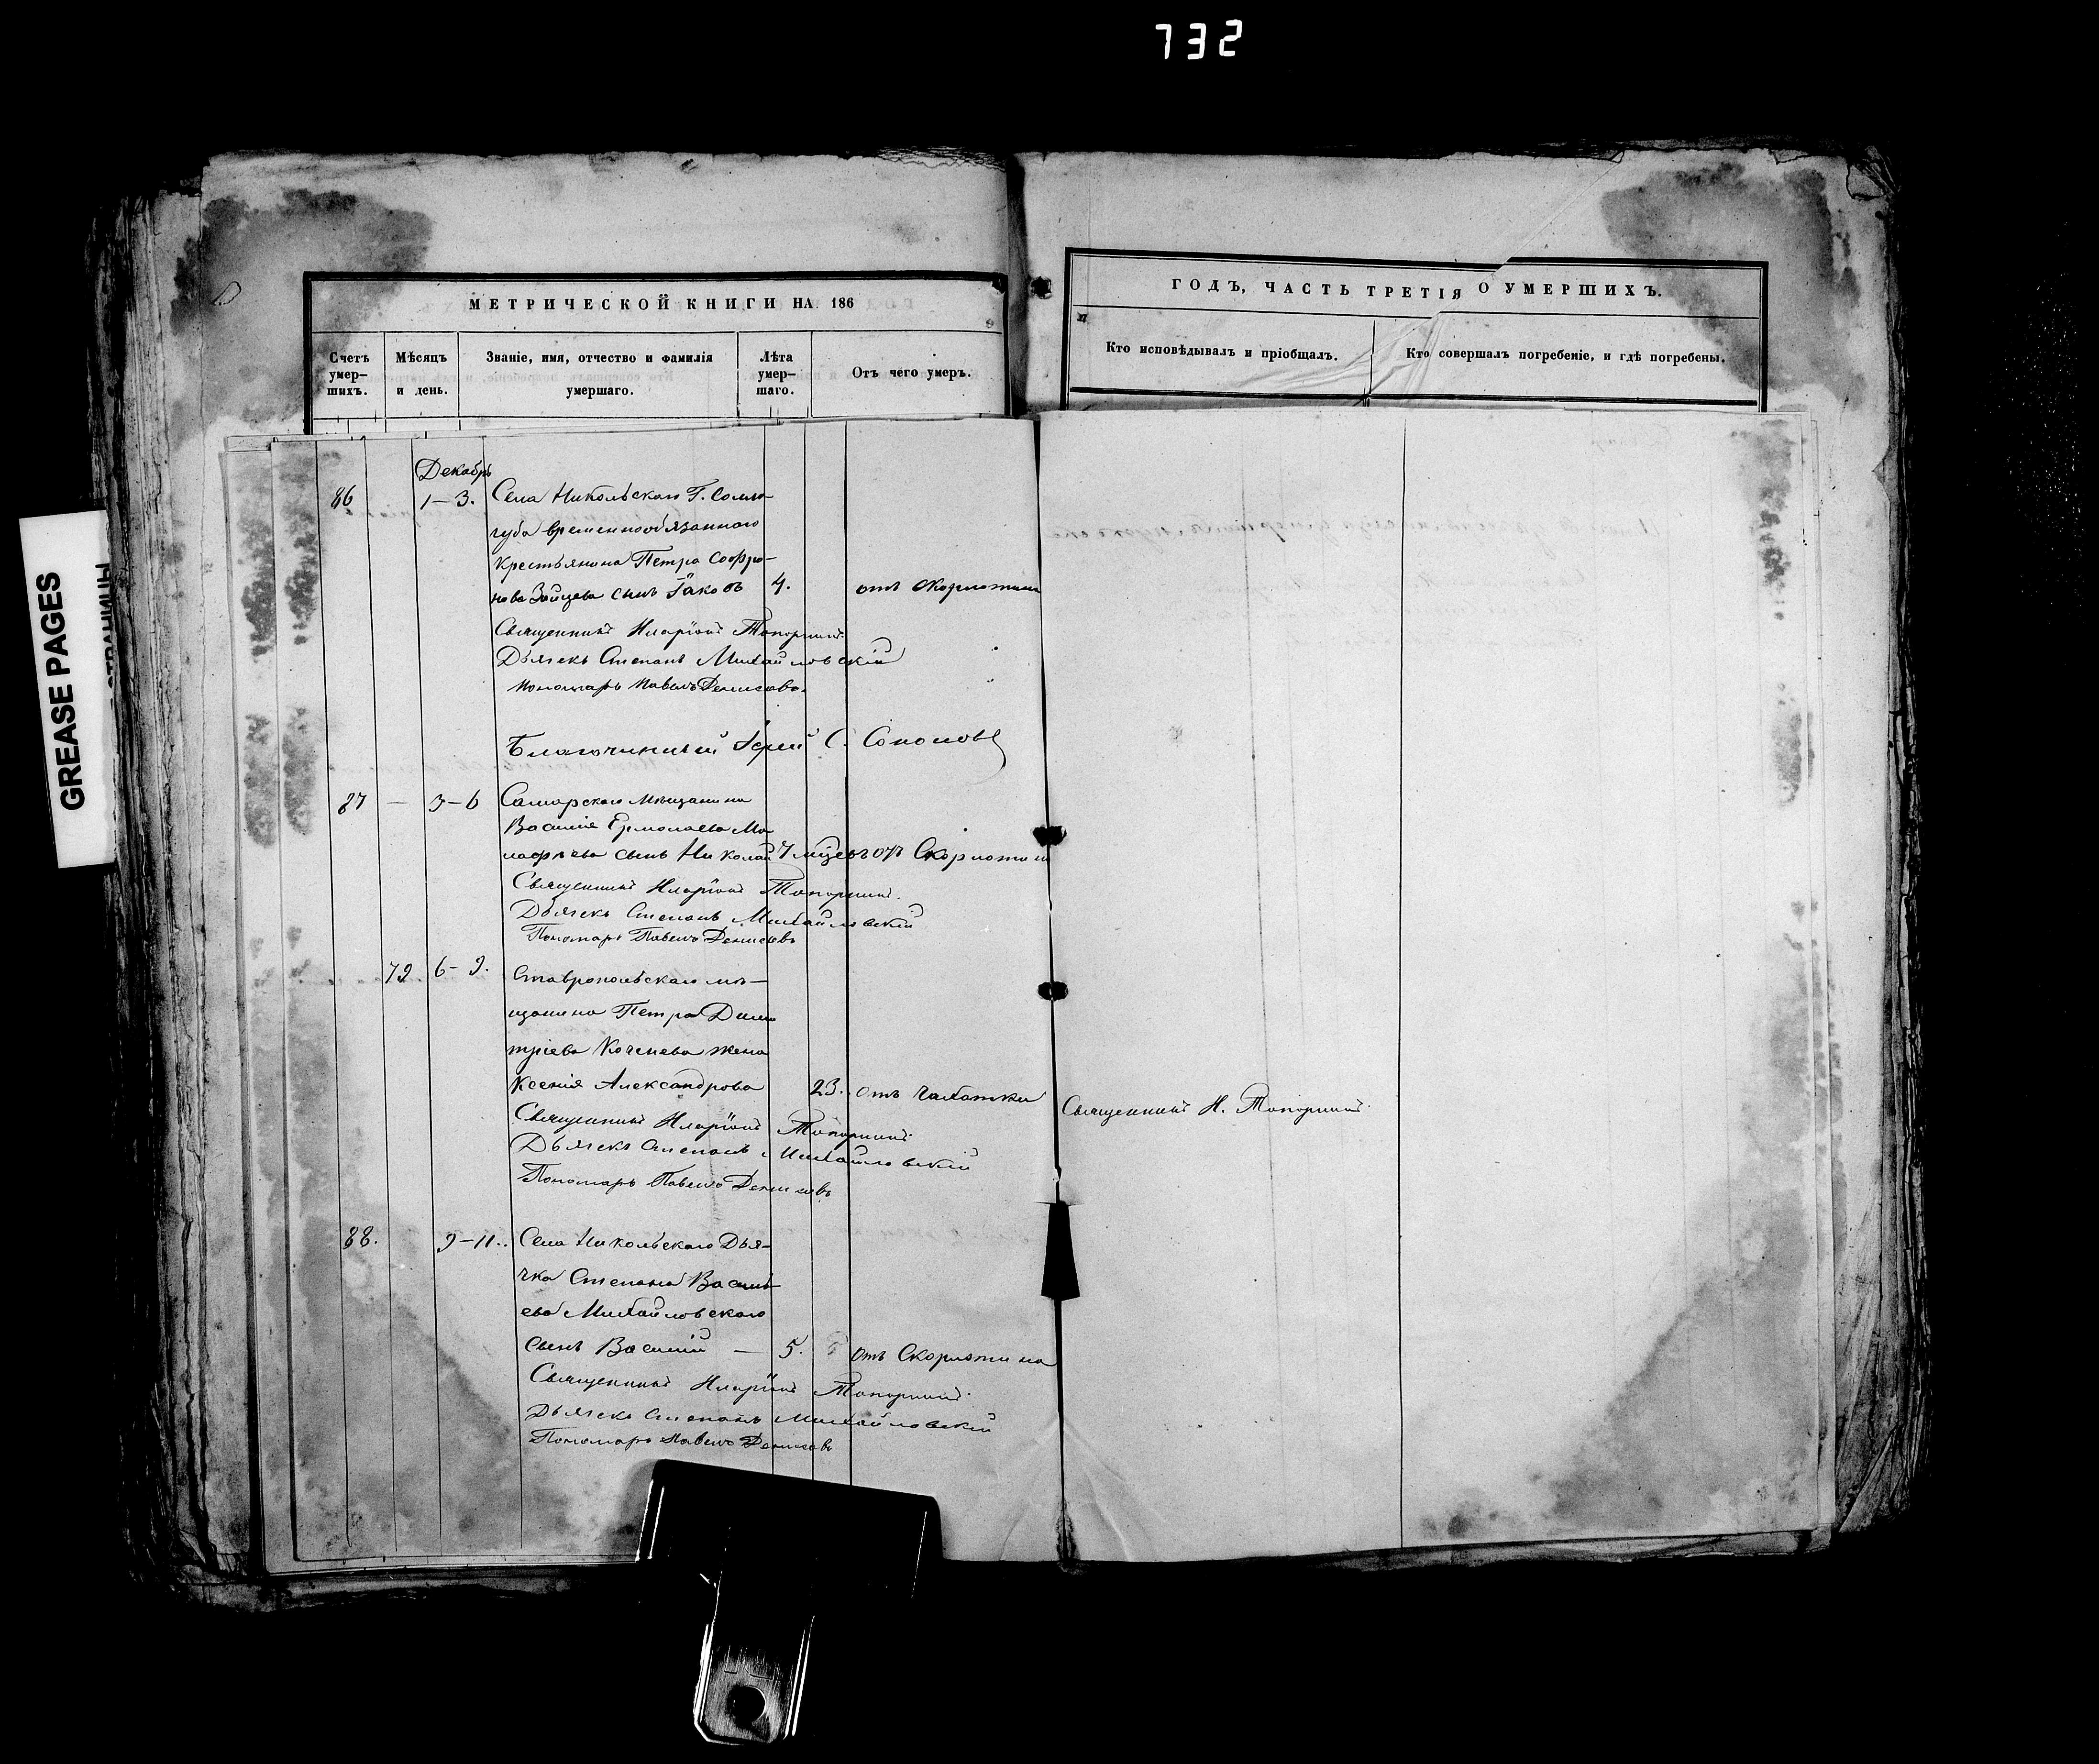 732
GREASE PAGES
МЕТРИЧЕСКОЙ КНИГИ НА 186
Счетъ умер-шихъ.
Мѣсяцъ и день.
Званіе, имя, отчество и фамилія умершаго.
Лѣта умер-шаго.
Отъ чего умеръ.
ГОДЪ, ЧАСТЬ ТРЕТІЯ О УМЕРШИХЪ.
Кто исповѣдывалъ и пріобщалъ.
Кто совершалъ погребеніе, и гдѣ погребены.
Декабрь
86 1–3. Села Никольскаго Г. Солло-
губа временнообязаннаго
крестьянина Петра Софро-
нова Зайцева сынъ Іаковъ 4. отъ Скорлотины
Священникъ Иларіонъ Топорнинъ.
Дьячекъ Степанъ Михайловскій
Пономарь Павелъ Денисовъ.
Благочинный Іерей С. Соколовъ
87 – 3–6 Самарскаго Мѣщанина
Василія Ермолаева Ма
лафѣева сынъ Николай 7 мѣсъ отъ Скорлотины
Священникъ Иларіонъ Топорнинъ.
Дьячекъ Степанъ Михайловскій
Пономарь Павелъ Денисовъ
79. 6–9. Ставропольскаго мѣ-
щанина Петра Дими
тріева Коченева жена
Ксенія Александрова 23. отъ чахотки
Священникъ Иларіонъ Топорнинъ.
Священникъ И. Топорнинъ.
Дьячекъ Степанъ Михайловскій
Пономарь Павелъ Денисовъ
88. 9–11. Села Никольскаго Дья-
чка Степана Василь
ева Михайловскаго
сынъ Василій – 5. отъ Скорлотина
Священникъ Иларіонъ Топорнинъ.
Дьячекъ Степанъ Михайловскій
Пономарь Павелъ Денисовъ